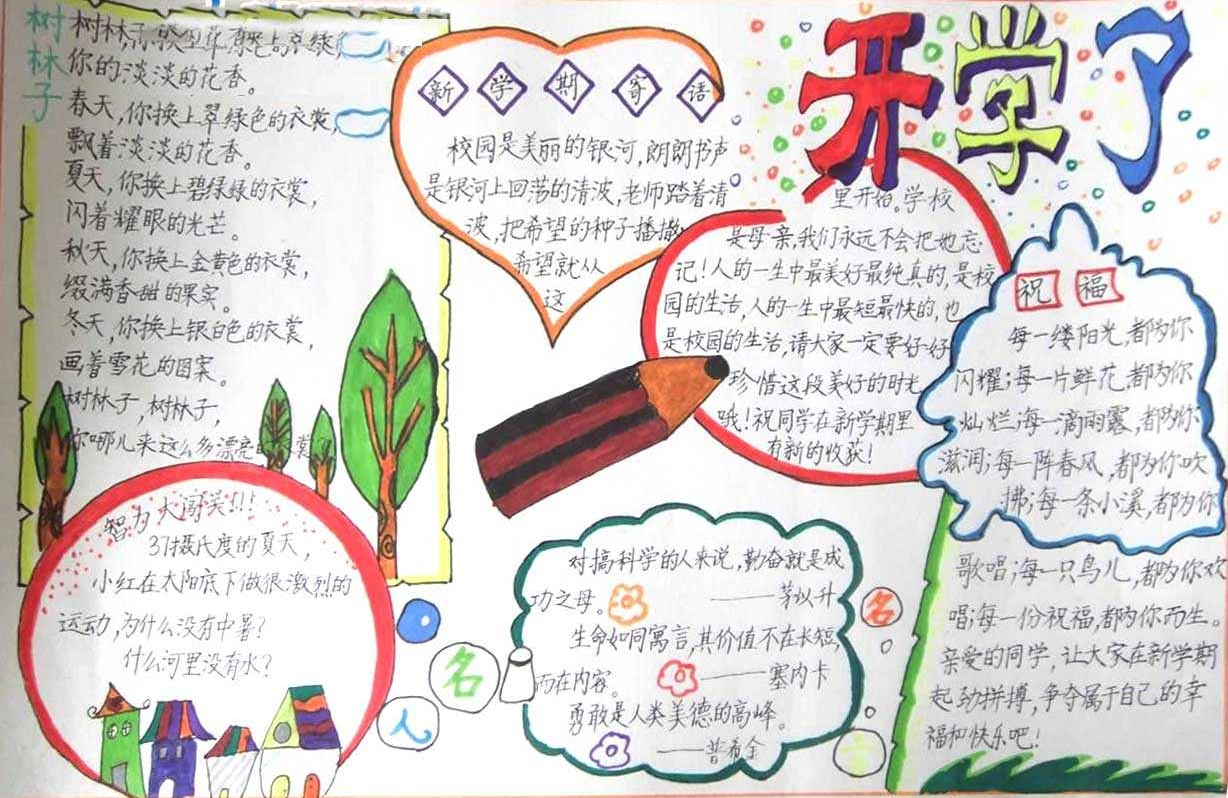 开学了
树林子
你的淡淡的花香。
春天,你换上翠绿色的衣裳,
飘着淡淡的花香。
夏天,你换上碧绿绿的衣裳,
闪着耀眼的光芒。
秋天,你换上金黄色的衣裳,
缀满香甜的果实。
冬天,你换上银白色的衣裳,
画着雪花的图案。
树林子,树林子,
你哪儿来这么多漂亮的衣裳?
新学期寄语
校园是美丽的银河,朗朗书声
是银河上回荡的清波,老师踏着清
波,把希望的种子播撒
希望就从
这
里开始。学校
是母亲,我们永远不会把她忘
记!人的一生中最美好最纯真的,是校
园的生活,人的一生中最短最快的,也
是校园的生活,请大家一定要好好
珍惜这段美好的时光
哦!祝同学在新学期里
有新的收获!
祝福
每一缕阳光,都为你
闪耀;每一片鲜花,都为你
灿烂;每一滴雨露,都为你
滋润;每一阵春风,都为你吹
拂;每一条小溪,都为你
歌唱;每一只鸟儿,都为你欢
唱;每一份祝福,都为你而生。
亲爱的同学,让大家在新学期
起劲拼搏,争夺属于自己的幸
福和快乐吧!
智力大闯关!!!
37摄氏度的夏天,
小红在太阳底下做很激烈的
运动,为什么没有中暑?
什么河里没有水?
名人名言
对搞科学的人来说,勤奋就是成
功之母。
——茅以升
生命如同寓言,其价值不在长短,
而在内容。
——塞内卡
勇敢是人类美德的高峰。
——普希金